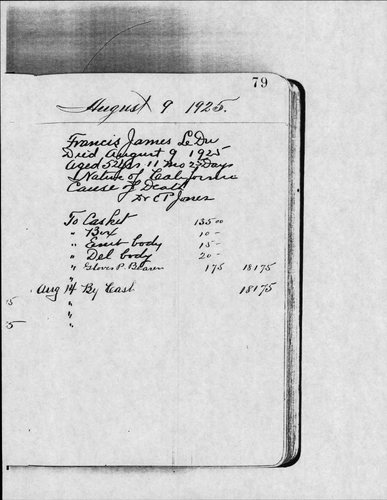 79
August 9 1925.
Francis James LeDu
Died August 9 1925
Aged 52 Yrs 11 mo 2 Days
Native of California
Cause of Death
Dr C P Jones
To Casket 135 00
" Box 10 -
" Emb body 15 -
" Del body 20 -
" Gloves P. Bearers 1 75 181 75
"
Aug 14 By Cash 181 75
"
"